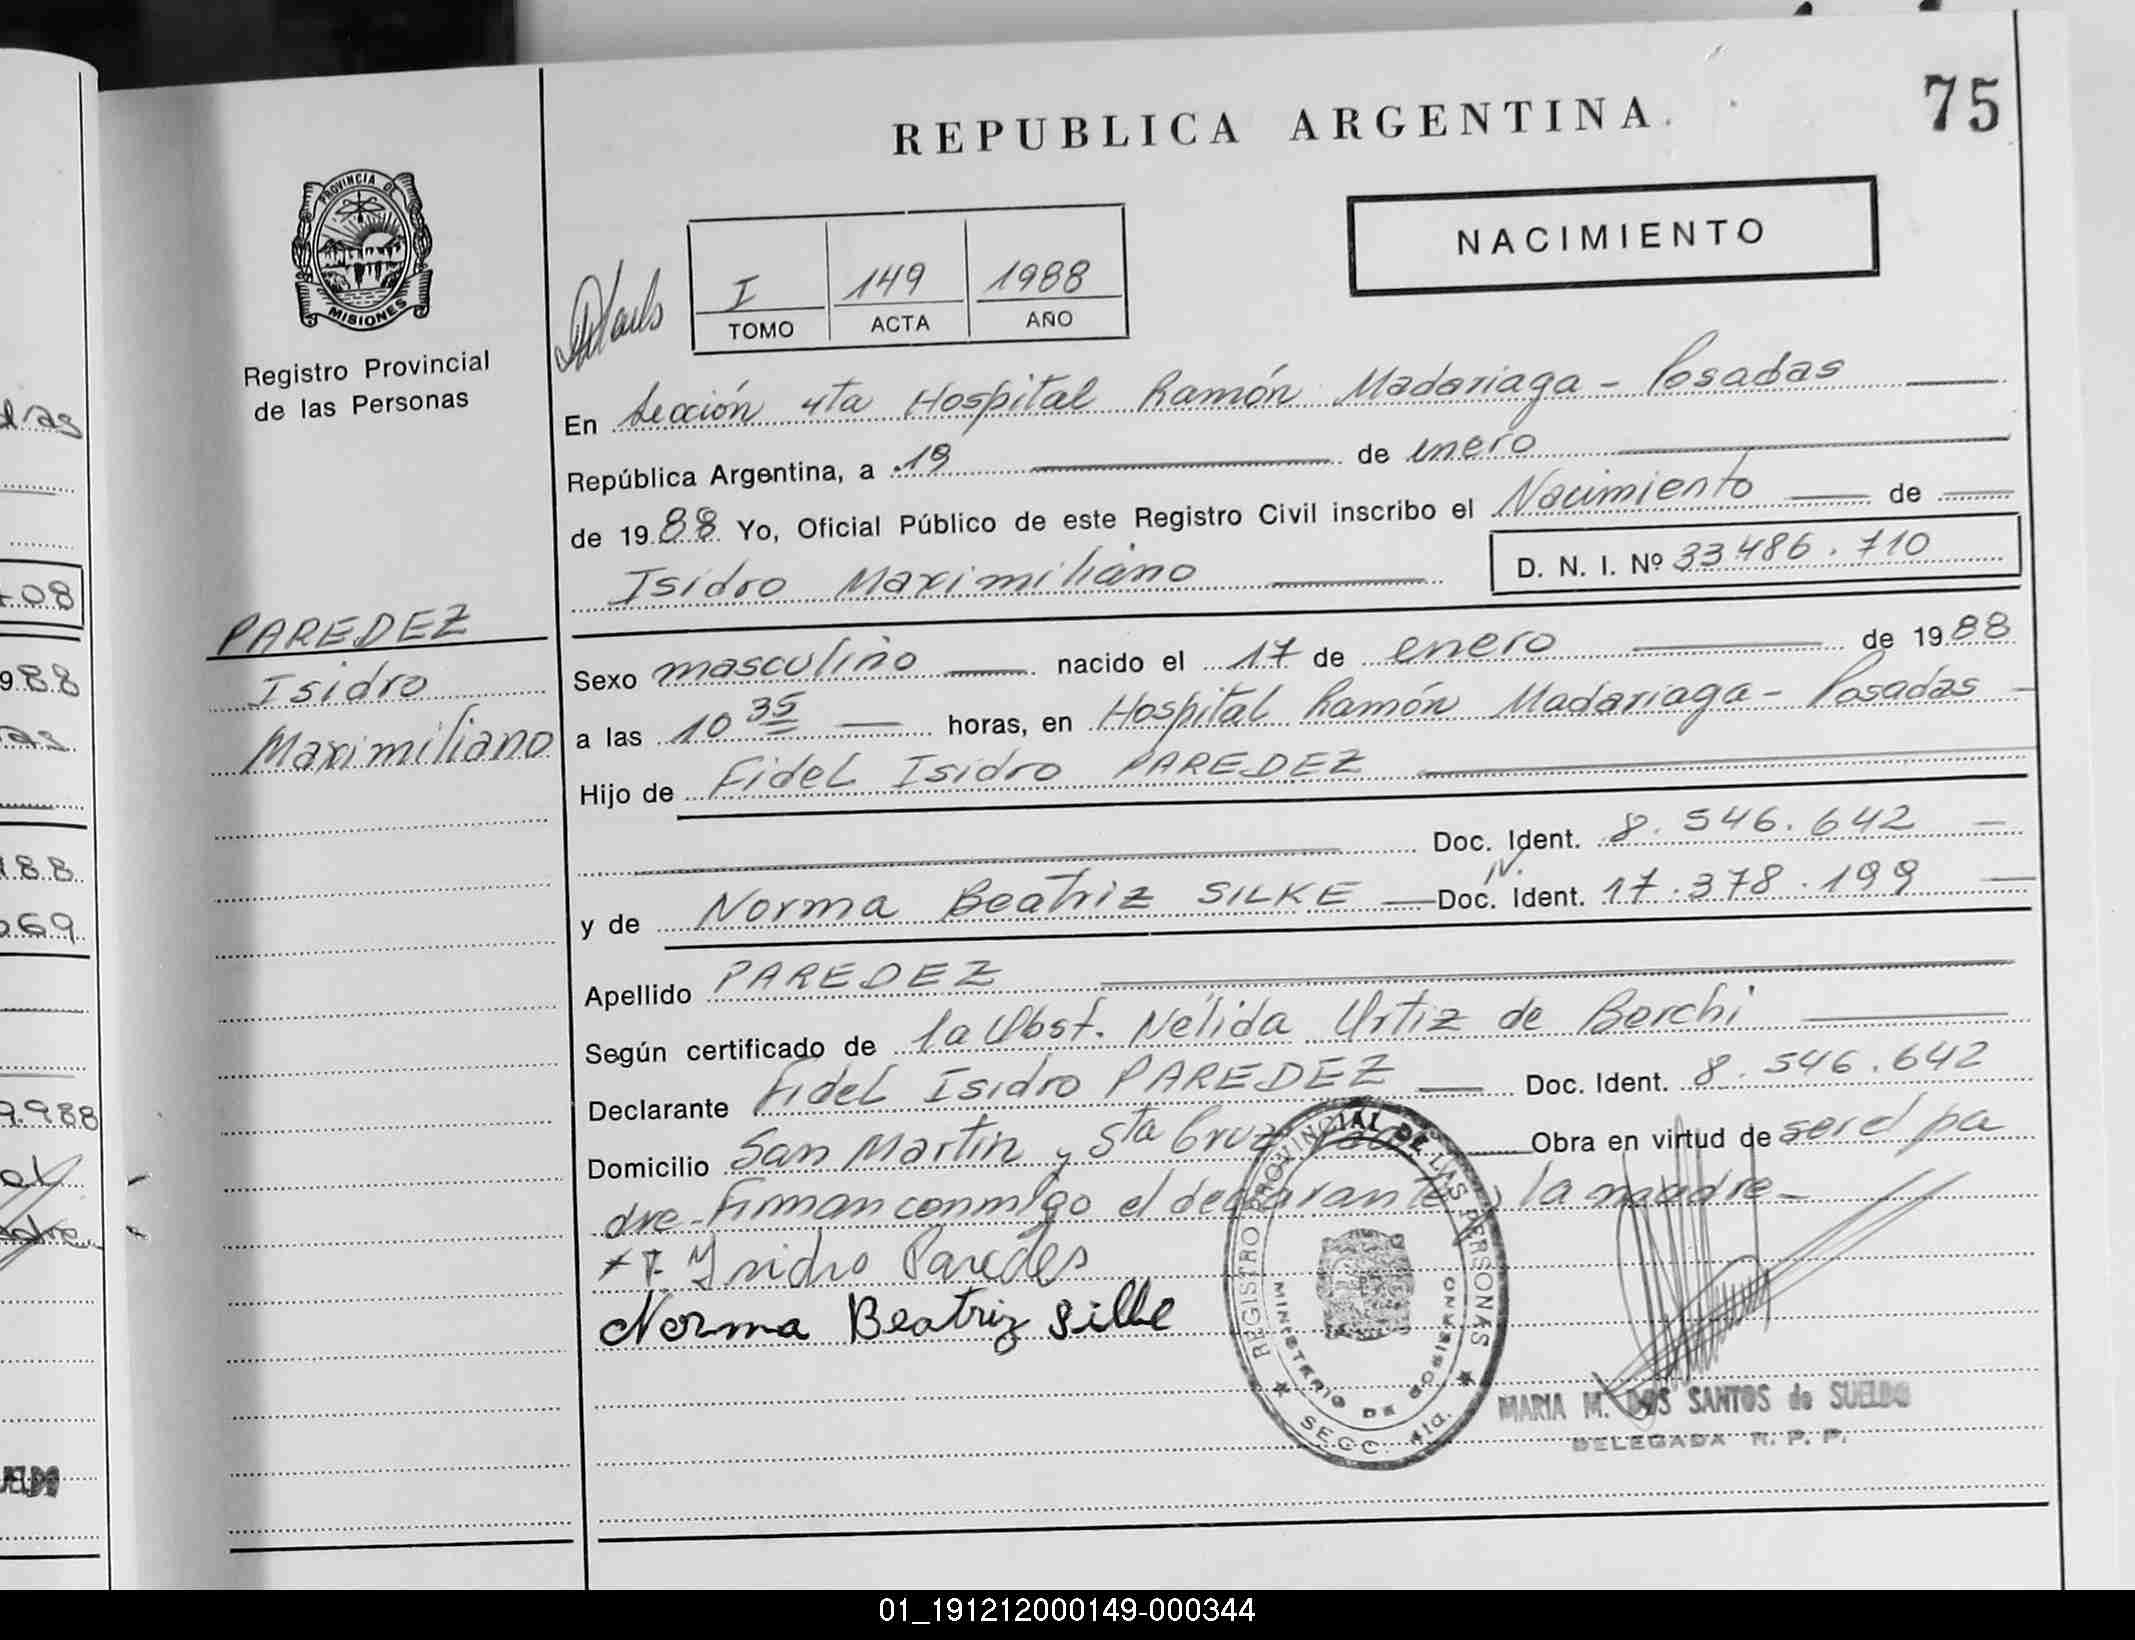 REPUBLICA ARGENTINA
75
PROVINCIA DE
MISIONES
Registro Provincial
de las Personas
NACIMIENTO
I 149 1988
TOMO ACTA AÑO
En Sección 4ta Hospital Ramón Madariaga - Posadas
República Argentina, a 19 de enero
de 1988 Yo, Oficial Público de este Registro Civil inscribo el Nacimiento de
Isidro Maximiliano D. N. I. Nº 33.486.710
PAREDEZ
Isidro
Maximiliano
Sexo masculino nacido el 17 de enero de 1988
a las 10 35 horas, en Hospital Ramón Madariaga - Posadas
Hijo de Fidel Isidro PAREDEZ
Doc. Ident. 8.546.642
N.
y de Norma Beatriz SILKE Doc. Ident. 17.378.199
Apellido PAREDEZ
Según certificado de la Obst. Nélida Ortiz de Borchi
Declarante Fidel Isidro PAREDEZ Doc. Ident. 8.546.642
Domicilio San Martín y Sta Cruz Obra en virtud de ser el pa
dre - Firman conmigo el declarante y la madre -
Isidro Paredes
Norma Beatriz Silke
REGISTRO PROVINCIAL DE LAS PERSONAS
MINISTERIO DE GOBIERNO
SECC. 4ta.
MARIA M. DOS SANTOS de SUELDO
DELEGADA R. P. P.
01_191212000149-000344